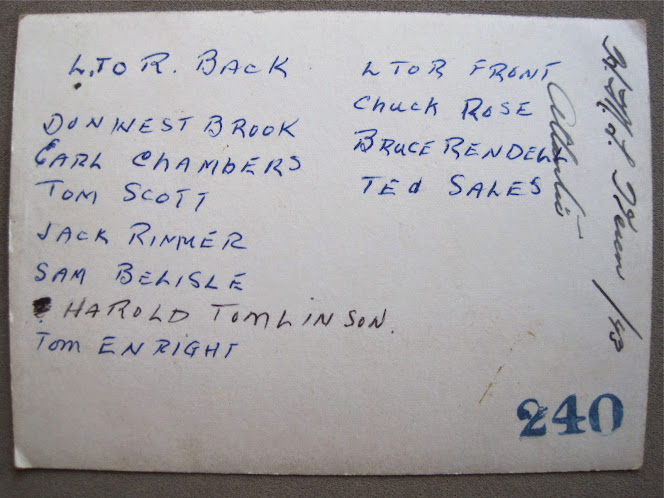 L. TO R. BACK
DON WEST BROOK
EARL CHAMBERS
TOM SCOTT
JACK RIMMER
SAM BELISLE
HAROLD TOMLINSON.
TOM ENRIGHT
L TO R FRONT
Chuck ROSE
BRUCE RENDELL
TEd SALES
Atlantic
240